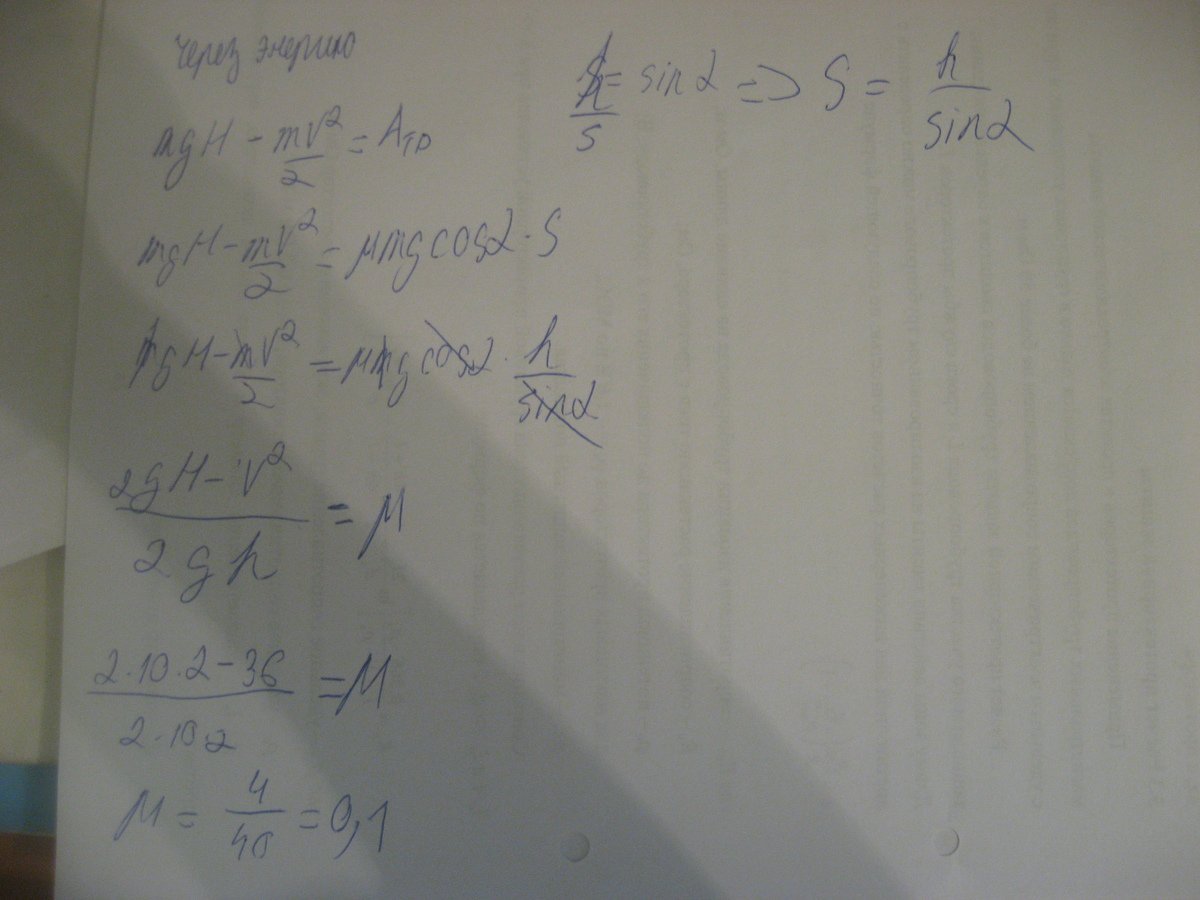 через энергию
mgH - mV²/2 = Aтр
mgH - mV²/2 = μmg cosα · S
mgH - mV²/2 = μmg cosα · h/sinα
2gH - V² / 2gh = μ
2·10·2 - 36 / 2·10·2 = μ
μ = 4/40 = 0,1
h/s = sinα => S = h/sinα